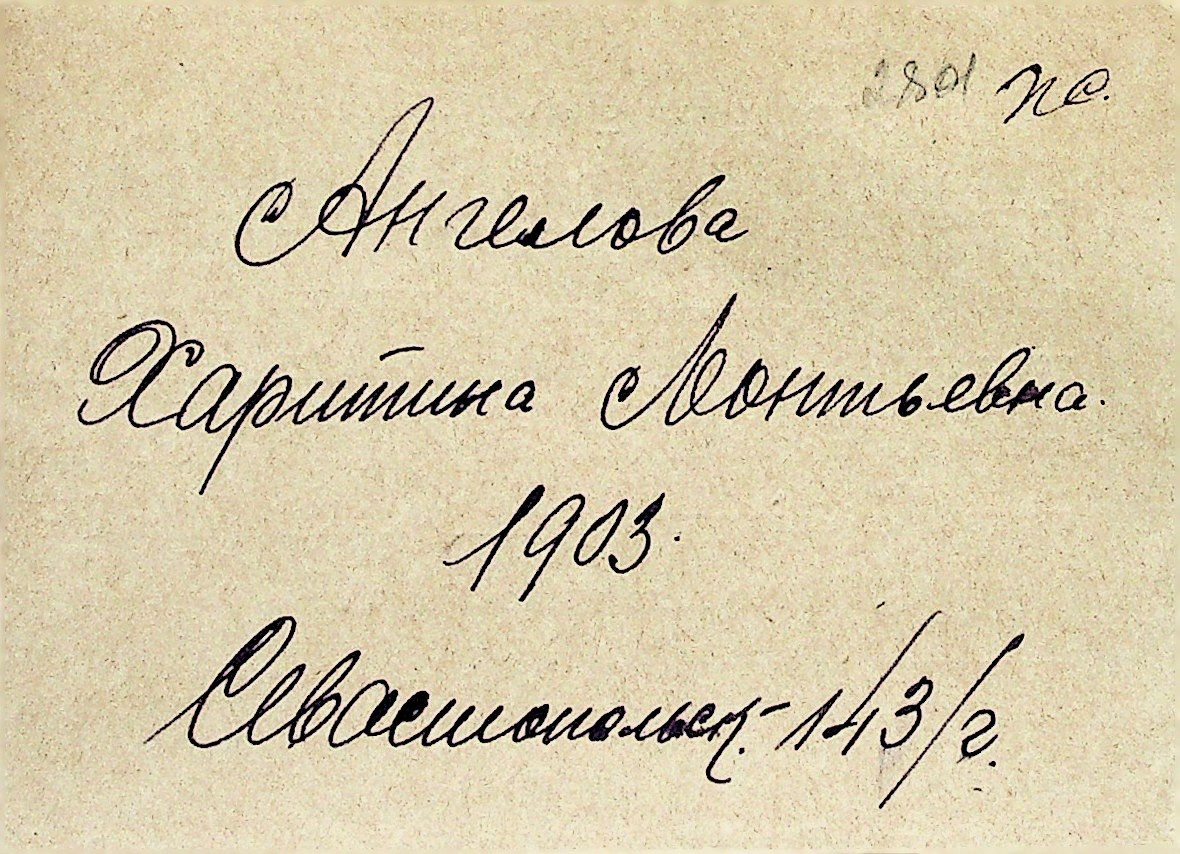 2801 пс.
Ангелова
Харитина Леонтьевна.
1903.
Севастопольск. 143/г.